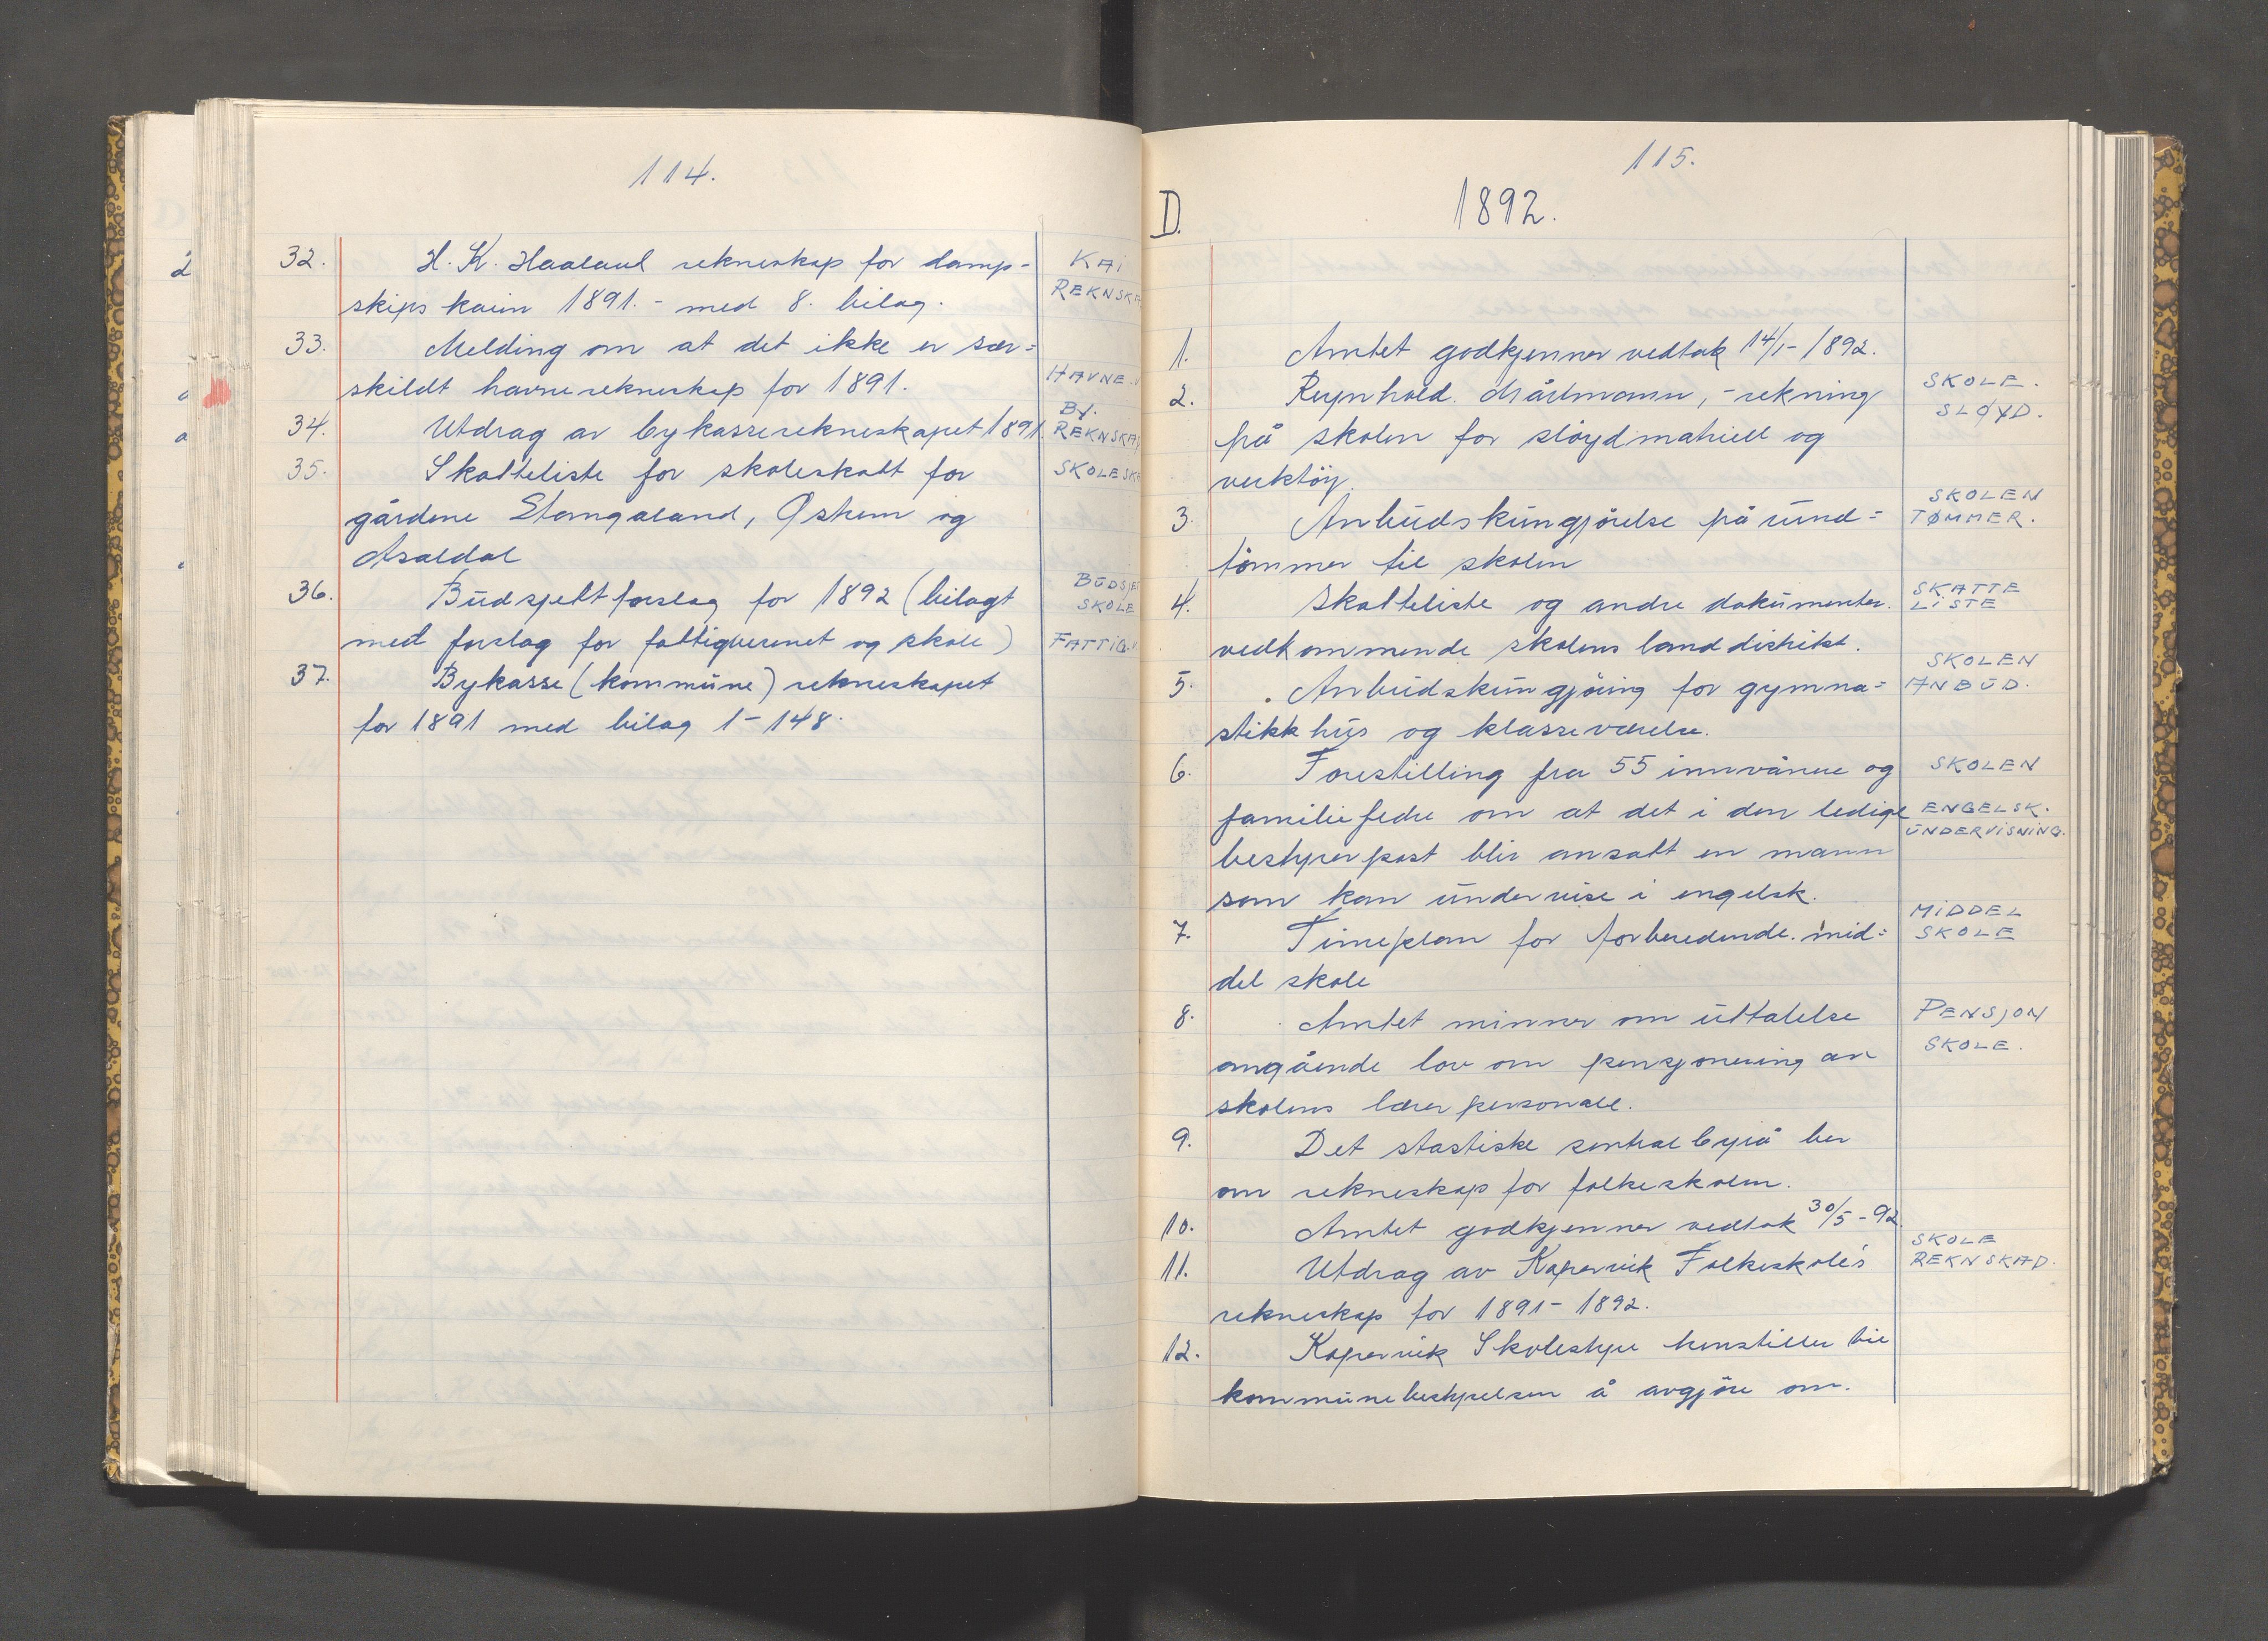 114.
32. H. K. Haaland rekneskap for damp-
skips kaien 1891. - med 8. bilag.
KAI
REKNSKA
33. Melding om at det ikke er sær=
skildt havnerekneskap for 1891.
HAVNE.
34. Utdrag av bykasserekneskapet 1891
BY.
REKNSKA
35. Skatteliste for skoleskatt for
gårdene Stangaland, Østrem og
Asaldal
SKOLESK
36. Budsjettforslag for 1892 (bilagt
med forslag for fattigvesenet og skole)
BUDSJE
SKOLE
FATTIG.
37. Bykasse (kommune) rekneskapet
for 1891 med bilag 1-148.
115.
D. 1892.
1. Amtet godkjenner vedtak 14/1-1892.
2. Reynhold Mårtmann, - rekning
på skolen for sløydmatriell og
verktøy.
SKOLE.
SLØYD.
3. Anbudskungjörelse på rund=
tømmer til skolen
SKOLEN
TØMMER.
4. Skatteliste og andre dokumenter.
vedkommende skolens landdistrikt.
SKATTE
LISTE
5. Anbudskungjöring for gymna=
stikk hus og klasseværelse.
SKOLEN
ANBUD.
6. Forestilling fra 55 innvånere og
familiefedre om at det i den ledige
bestyrerpost blir ansatt en mann
som kan undervise i engelsk.
SKOLEN
ENGELSK.
UNDERVISNING.
7. Timeplan for forberedende mid=
del skole
MIDDEL
SKOLE
8. Amtet minner om uttalelse
angående lov om pensjonering av
skolens lærer personale.
PENSJON
SKOLE.
9. Det stastiske sentralbyrå ber
om rekneskap for folkeskolen.
10. Amtet godkjenner vedtak 30/5-92.
11. Utdrag av Kopervik Folkeskole's
rekneskap for 1891-1892.
SKOLE
REKNSKAP.
12. Kopervik Skolestyre henstiller til
kommunebestyrelsen å avgjöre om.